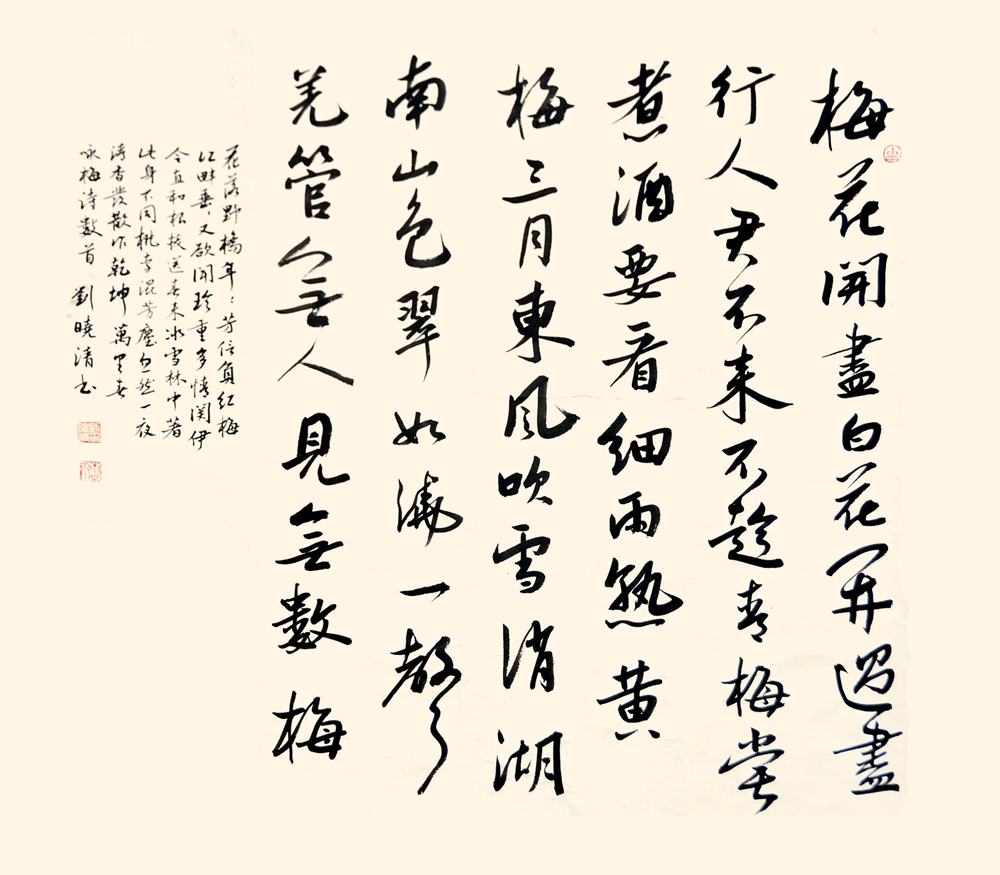 梅花開盡白花开過盡
行人君不来不趁青梅嘗
煮酒要看細雨熟黄
梅三月東風吹雪消湖
南山色翠如澆一聲
羌管無人見無數梅
花落野橋年々芳信負紅梅
江畔垂々又欲開珍重多情関伊
令直和根拔送春来冰雪林中著
此身不同桃李混芳塵忽然一夜
清香發散作乾坤萬里春
咏梅诗數首 劉曉清书